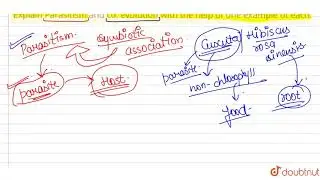 Explain Parasitism and co-evolution with the help of one example of each.
Parasitism - symbiotic
association
parasite Host
Cuscuta Hibiscus
rosa
sinensis
parasite
non-chlorophyll
food
root
doubtnut